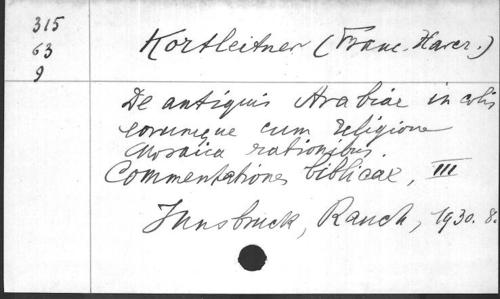 315
63
9
Kortleitner (Franc. Xaver.)
De antiquis Arabiae incolis
eorumque cum religione
Mosaica rationibus.
Commentationes biblicae, III
Innsbruck, Rauch, 1930. 8.